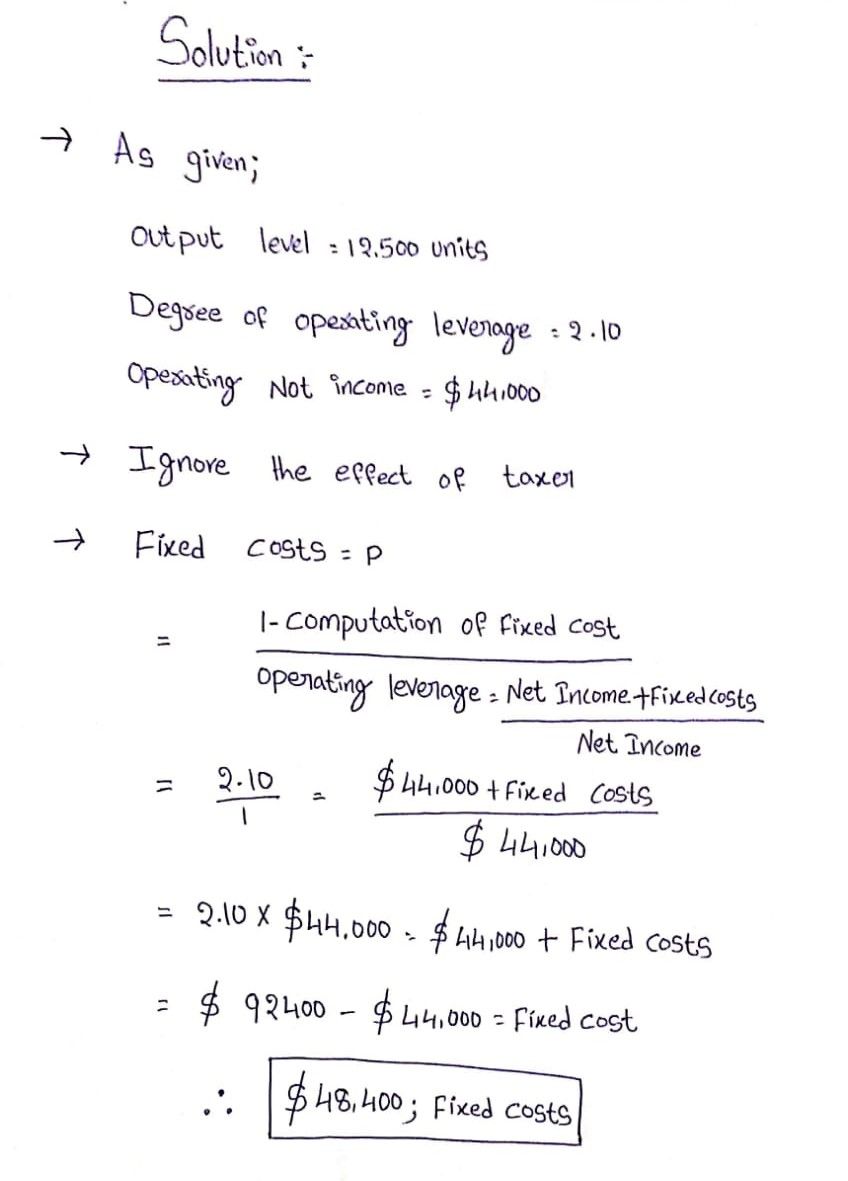 Solution :-
→ As given;
Output level = 12,500 units
Degree of operating leverage = 2.10
Operating Not income = $44,000
→ Ignore the effect of taxes
→ Fixed costs = P
= 1- Computation of Fixed cost
Operating leverage = Net Income + Fixed costs
Net Income
= 2.10 = $44,000 + Fixed costs
1 $ 44,000
= 2.10 X $44,000 = $44,000 + Fixed costs
= $ 92400 - $44,000 = Fixed cost
∴ $48,400; Fixed costs